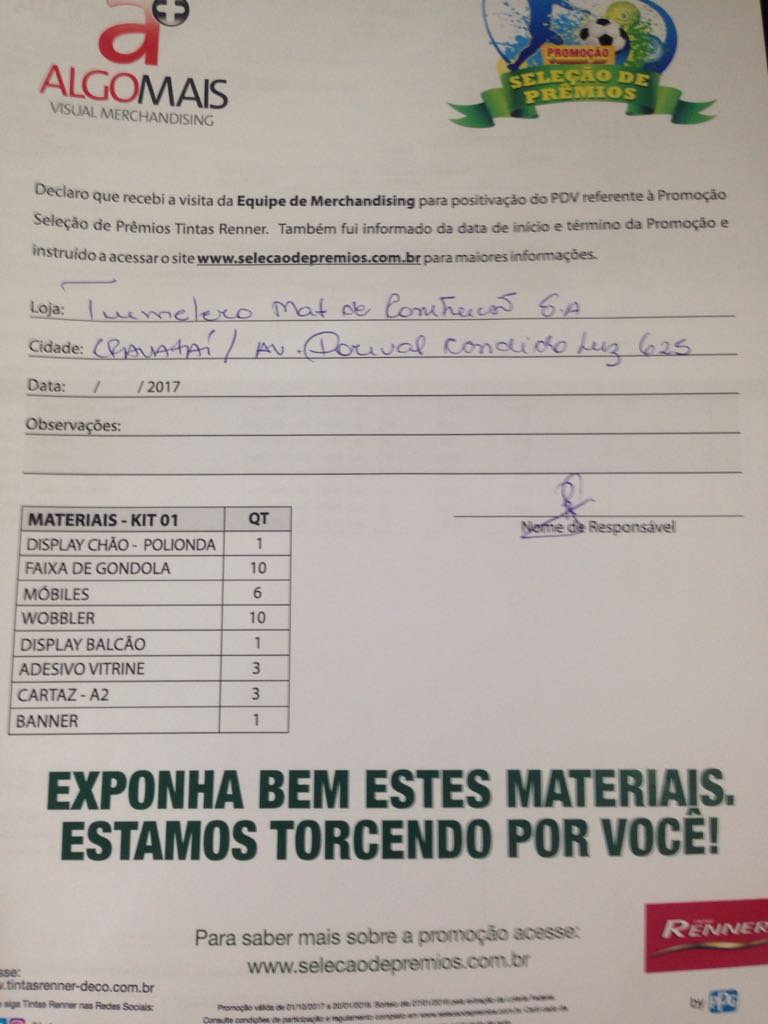 a+
ALGOMAIS
VISUAL MERCHANDISING
PROMOÇÃO
SELEÇÃO DE
PRÊMIOS
Declaro que recebi a visita da Equipe de Merchandising para positivação do PDV referente à Promoção
Seleção de Prêmios Tintas Renner. Também fui informado da data de início e término da Promoção e
instruído a acessar o site www.selecaodepremios.com.br para maiores informações.
Loja: Tumelero Mat de Construcao S.A
Cidade: GRAVATAÍ / AV. Dorival Condido Luz 625
Data: / / 2017
Observações:
Nome de Responsável
MATERIAIS - KIT 01 QT
DISPLAY CHÃO - POLIONDA 1
FAIXA DE GONDOLA 10
MÓBILES 6
WOBBLER 10
DISPLAY BALCÃO 1
ADESIVO VITRINE 3
CARTAZ - A2 3
BANNER 1
EXPONHA BEM ESTES MATERIAIS.
ESTAMOS TORCENDO POR VOCÊ!
Para saber mais sobre a promoção acesse:
www.selecaodepremios.com.br
RENNER
by PPG
sse:
.tintasrenner-deco.com.br
e siga Tintas Renner nas Redes Sociais:
Promoção válida de 01/10/2017 a 20/01/2018.
Consulte condições de participação e regulamento completo em